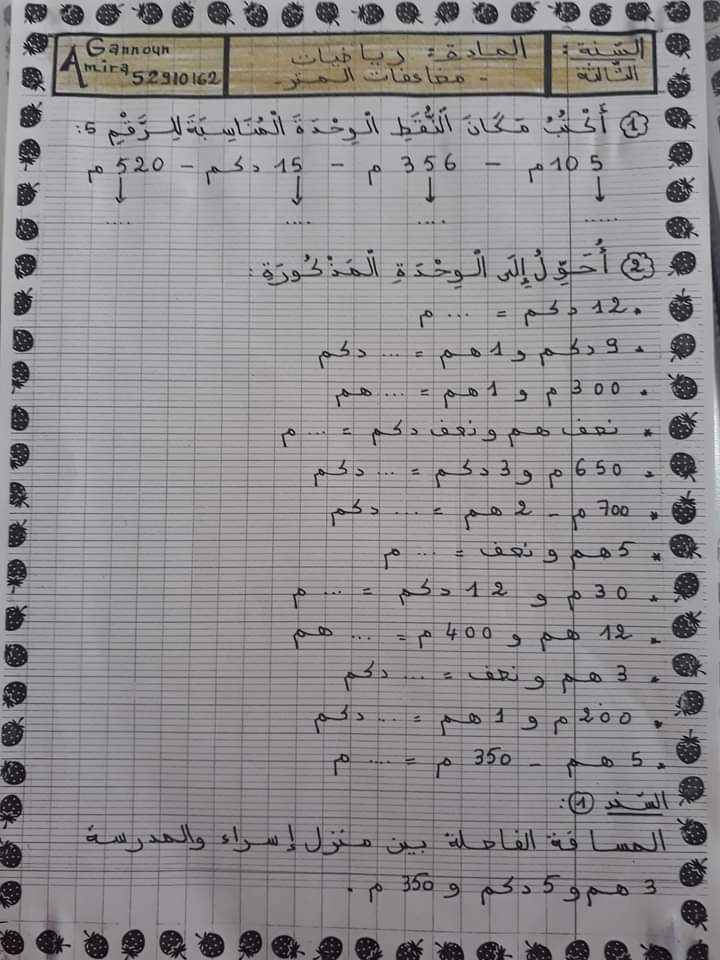 السّنة: الثّالثة
المادة: رياضيات
- مضاعفات المتر -
Gannoun
Amira 52910162
① أَكْتُبُ مَكَانَ النُّقَطِ الْوِحْدَةَ الْمُنَاسِبَةَ لِلرَّقْمِ 5:
105 م - 356 م - 15 دكم - 520 م
..... .... .... ....
② أُحَوِّلُ إِلَى الْوِحْدَةِ الْمَذْكُورَةِ:
* 12 دكم = ... م
* 9 دكم و 1 هم = ... دكم
* 300 م و 1 هم = ... هم
* نصف هم و نصف دكم = ... م
* 650 م و 3 دكم = ... دكم
* 700 م - 2 هم = ... دكم
* 5 هم و نصف = ... م
* 30 م و 12 دكم = ... م
* 12 هم و 400 م = ... هم
* 3 هم و نصف = ... دكم
* 200 م و 1 هم = ... دكم
* 5 هم - 350 م = .... م
السند ①:
المسافة الفاصلة بين منزل إسراء والمدرسة
3 هم و 5 دكم و 350 م .